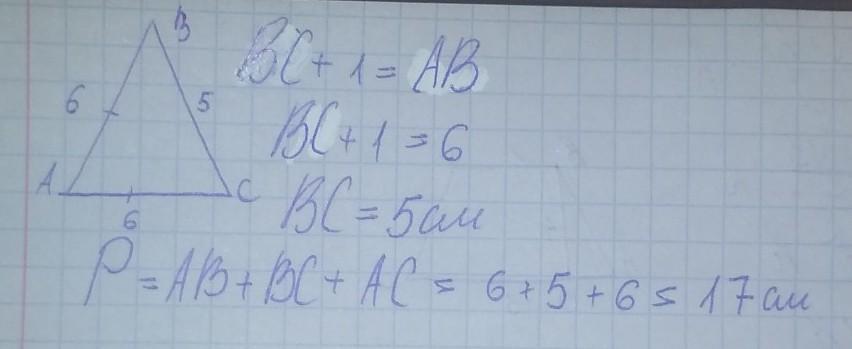 B
6
5
A
C
6
BC + 1 = AB
BC + 1 = 6
BC = 5 см
P = AB + BC + AC = 6 + 5 + 6 = 17 см